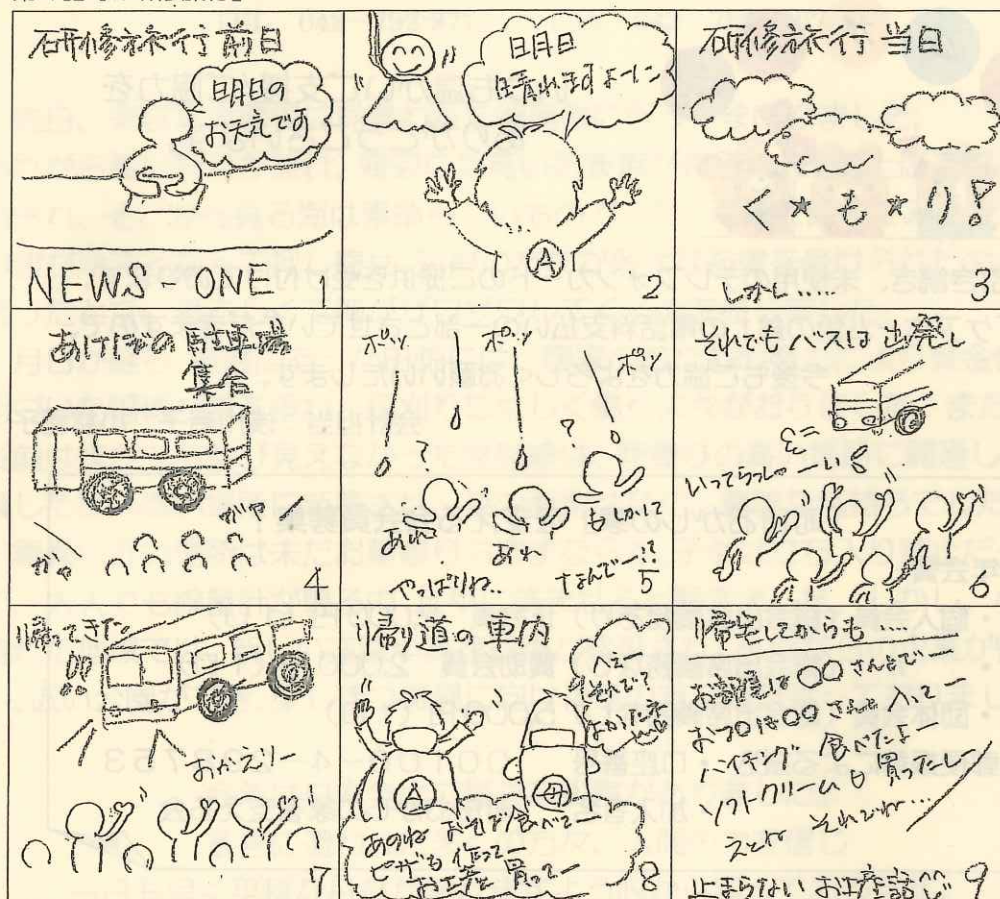 研修旅行前日
明日の
お天気です
NEWS-ONE
1
明日
晴れますよーに
A
2
研修旅行 当日
く★も★り!
しかし‥‥‥
3
駐車場
集合
ガヤ
ガヤ
4
ポッ
ポッ
ポッ
?
?
あれ?
あれ
もしかして
やっぱりね‥
なんでー!?
5
それでもバスは出発し
いってらっしゃーい
6
帰ってきた
!!
おかえりー
7
帰り道の車内
へえー
それで?
よかったネ
A
母
あのね おそば食べてー
ピザも作ってー
お土産も買ってー
8
帰宅してからも‥‥
お部屋は〇〇さんとでー
おフロは〇〇さんと入ってー
バイキング食べたよー
ソフトクリームも買ったしー
えとね それでね…
止まらないお土産話
9